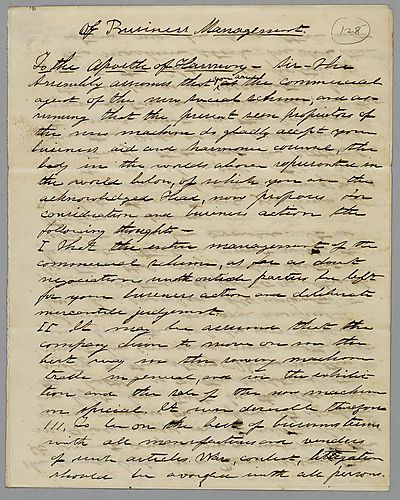 Of Business Management.
128
To the Apostle of Harmony – Sir – The
Assembly assumes that you are as the commercial
agent of the new social scheme, and as-
suming that the present seen proprietors of
the new machine do gladly accept your
business aid and harmonic counsel, the
body in the worlds above represented in
the world below, of which you are the
acknowledged Head, now proposes for
consideration and business action the
following thoughts –
I That the entire management of the
commercial scheme, as far as
negociations with outside parties be left
for your business action and deliberate
mercantile judgement
II It may be assumed that the
company desire to move on in the
best way in the sewing machine
trade in general, and in the exhibi-
tion and the sale of the new machine
in special. It were desirable therefore
III, To be on the best of business terms
with all manufacturers and venders
of such articles. War, contest, litigation
should be avoided with all persons.